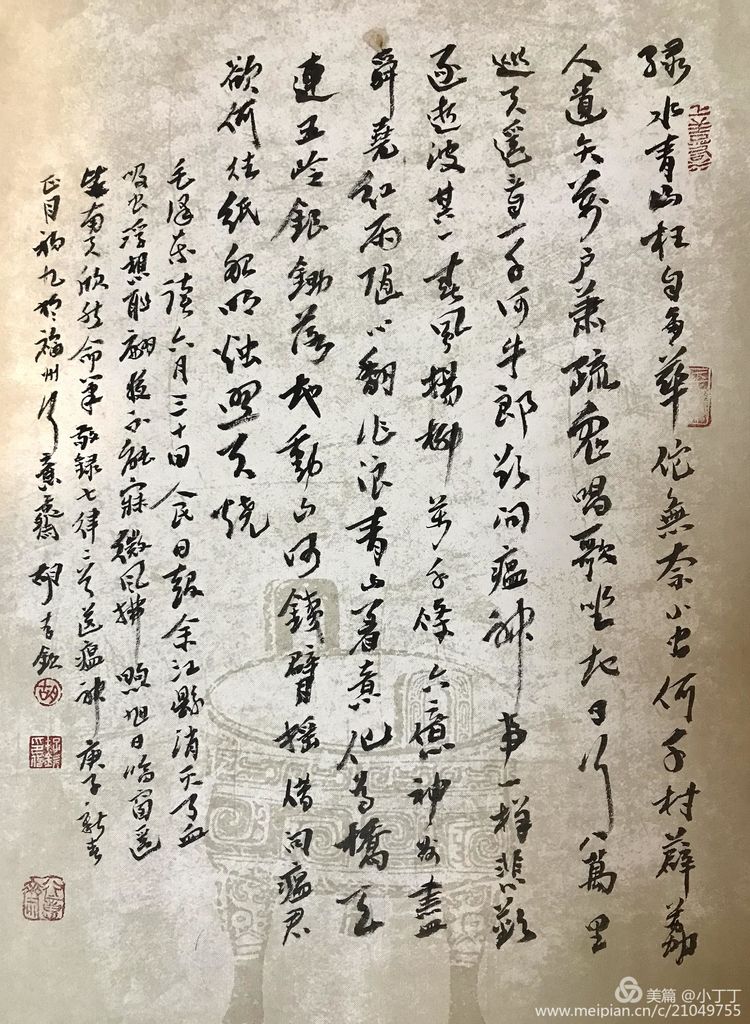 绿水青山枉自多華佗無奈小虫何千村薜荔
人遺矢萬户萧疏鬼唱歌坐地日行八萬里
巡天遥看一千河牛郎欲问瘟神事一样悲歡
逐逝波其一春風楊柳萬千條六億神州盡
舜堯紅雨随心翻作浪青山着意化為橋天
連五岭銀鋤落地動山河鐵臂摇借问瘟君
欲何往紙船明烛照天烧
毛泽东读六月三十日人民日報余江縣消灭了血
吸虫浮想联翩夜不能寐微風拂煦旭日临窗遥
望南天欣然命笔敬録七律二首送瘟神庚子新春
正月初九於福州行意斋胡
胡
美篇 @小丁丁
www.meipian.cn/c/21049755